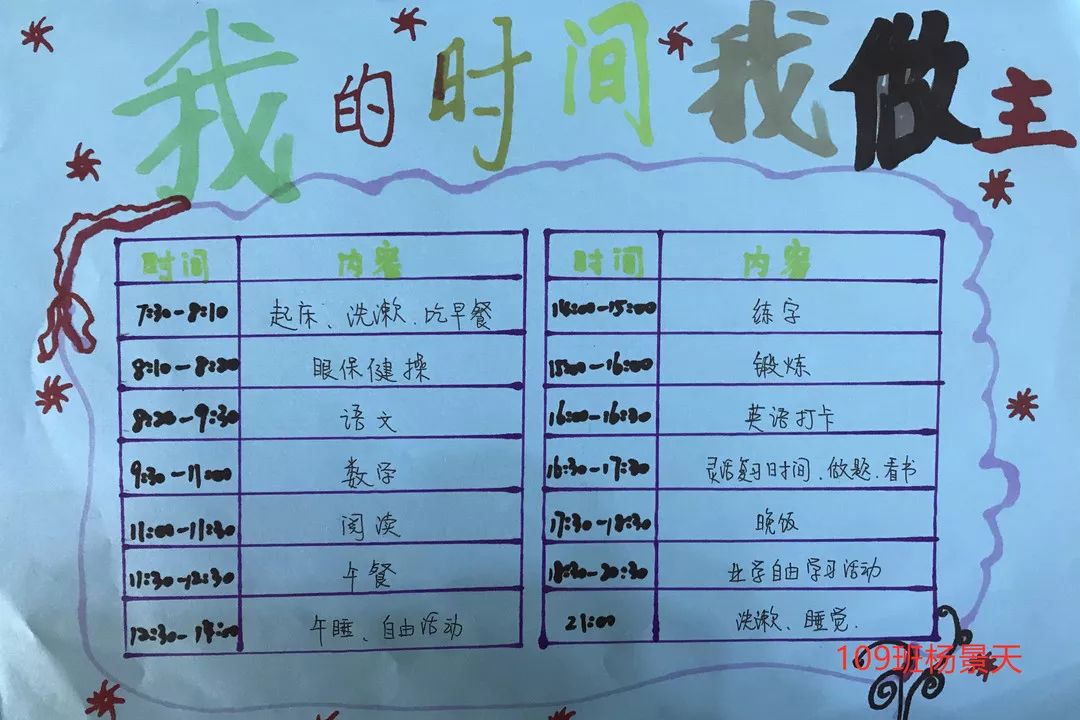 我的时间我做主
时间 内容
7:30-8:10 起床、洗漱.吃早餐
8:10-8:20 眼保健操
8:20-9:30 语文
9:30-11:00 数学
11:00-11:30 阅读
11:30-12:30 午餐
12:30-14:00 午睡、自由活动
时间 内容
14:00-15:00 练字
15:00-16:00 锻炼
16:00-16:30 英语打卡
16:30-17:30 灵活复习时间、做题.看书
17:30-18:30 晚饭
18:30-20:30 自由学习活动
21:00 洗漱、睡觉.
109班杨景天